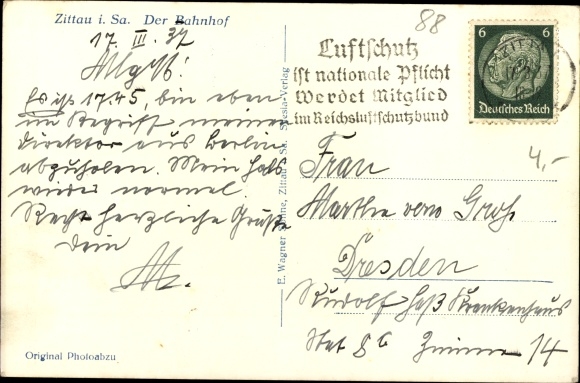 Zittau i. Sa. Der Bahnhof
17. III. 37
Es ist 17.45, bin eben
im Begriff meinen
Direktor aus Berlin
abzuholen. Mein Hals
wieder normal
Recht herzliche Grüße
Dein
M.
Original Photoabzu
E. Wagner Söhne, Zittau i. Sa. Spesia-Verlag
88
Luftschutz
ist nationale Pflicht
Werdet Mitglied
im Reichsluftschutzbund
6 6
Deutsches Reich
4,-
Frau
Martha vem Groß
Dresden
Rudolf Heß Krankenhaus
Stat 8 Zimmer 14